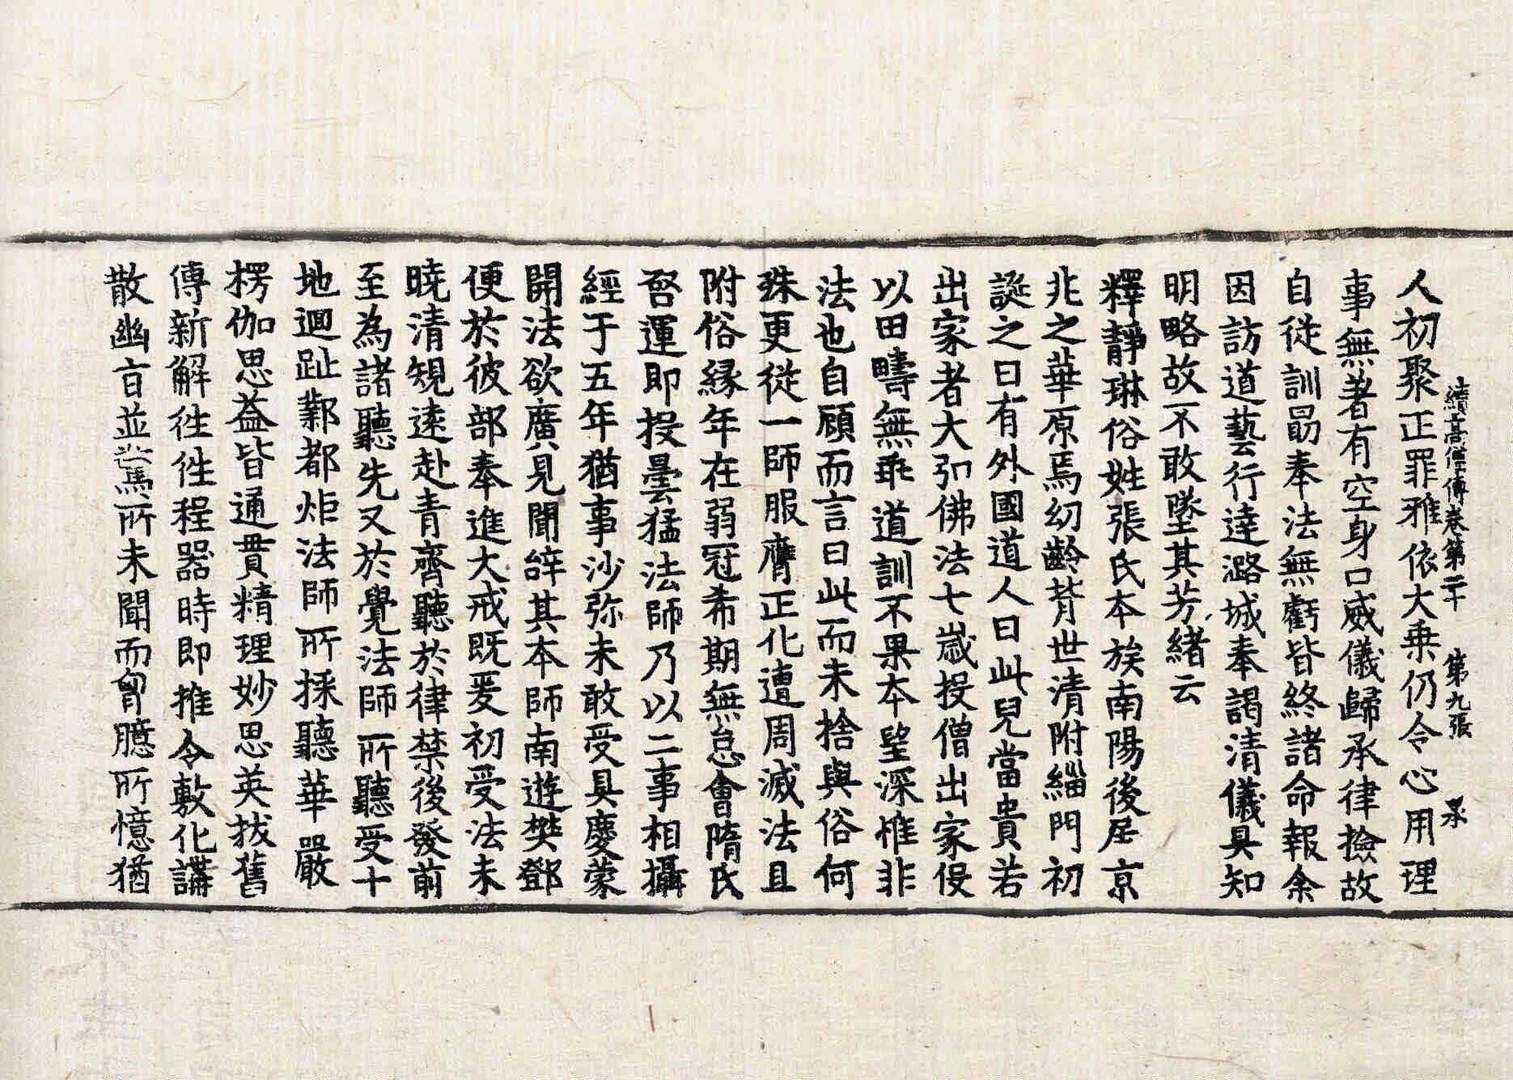 續高僧傳卷第二十 第九張 羕
人初聚正罪雅依大乗仍令心用理
事無著有空身口威儀歸承律撿故
自從訓勗奉法無虧皆終諸命報余
因訪道藝行達潞城奉謁清儀具知
明略故不敢墜其芳緒云
釋静琳俗姓張氏本族南陽後居京
兆之華原焉幼齡背世清附緇門初
誕之日有外國道人曰此兒當貴若
出家者大弘佛法七嵗投僧出家侵
以田疇無乖道訓不果本望深惟非
法也自顧而言曰此而未捨與俗何
殊更從一師服膺正化遭周滅法且
附俗縁年在弱冠希期無怠會隋氏
啓運即投曇猛法師乃以二事相攝
經于五年猶事沙弥未敢受具慶蒙
開法欲廣見聞辭其本師南遊樊鄧
便於彼部奉進大戒既爰初受法未
曉清規遠赴青齊聽於律禁後發前
至為諸聽先又於覺法師所聽受十
地迴趾鄴都炬法師所採聽華嚴
楞伽思益皆通貫精理妙思英拔舊
傳新解往往程器時即推令敷化講
散幽旨並驚所未聞而胷臆所憶猶